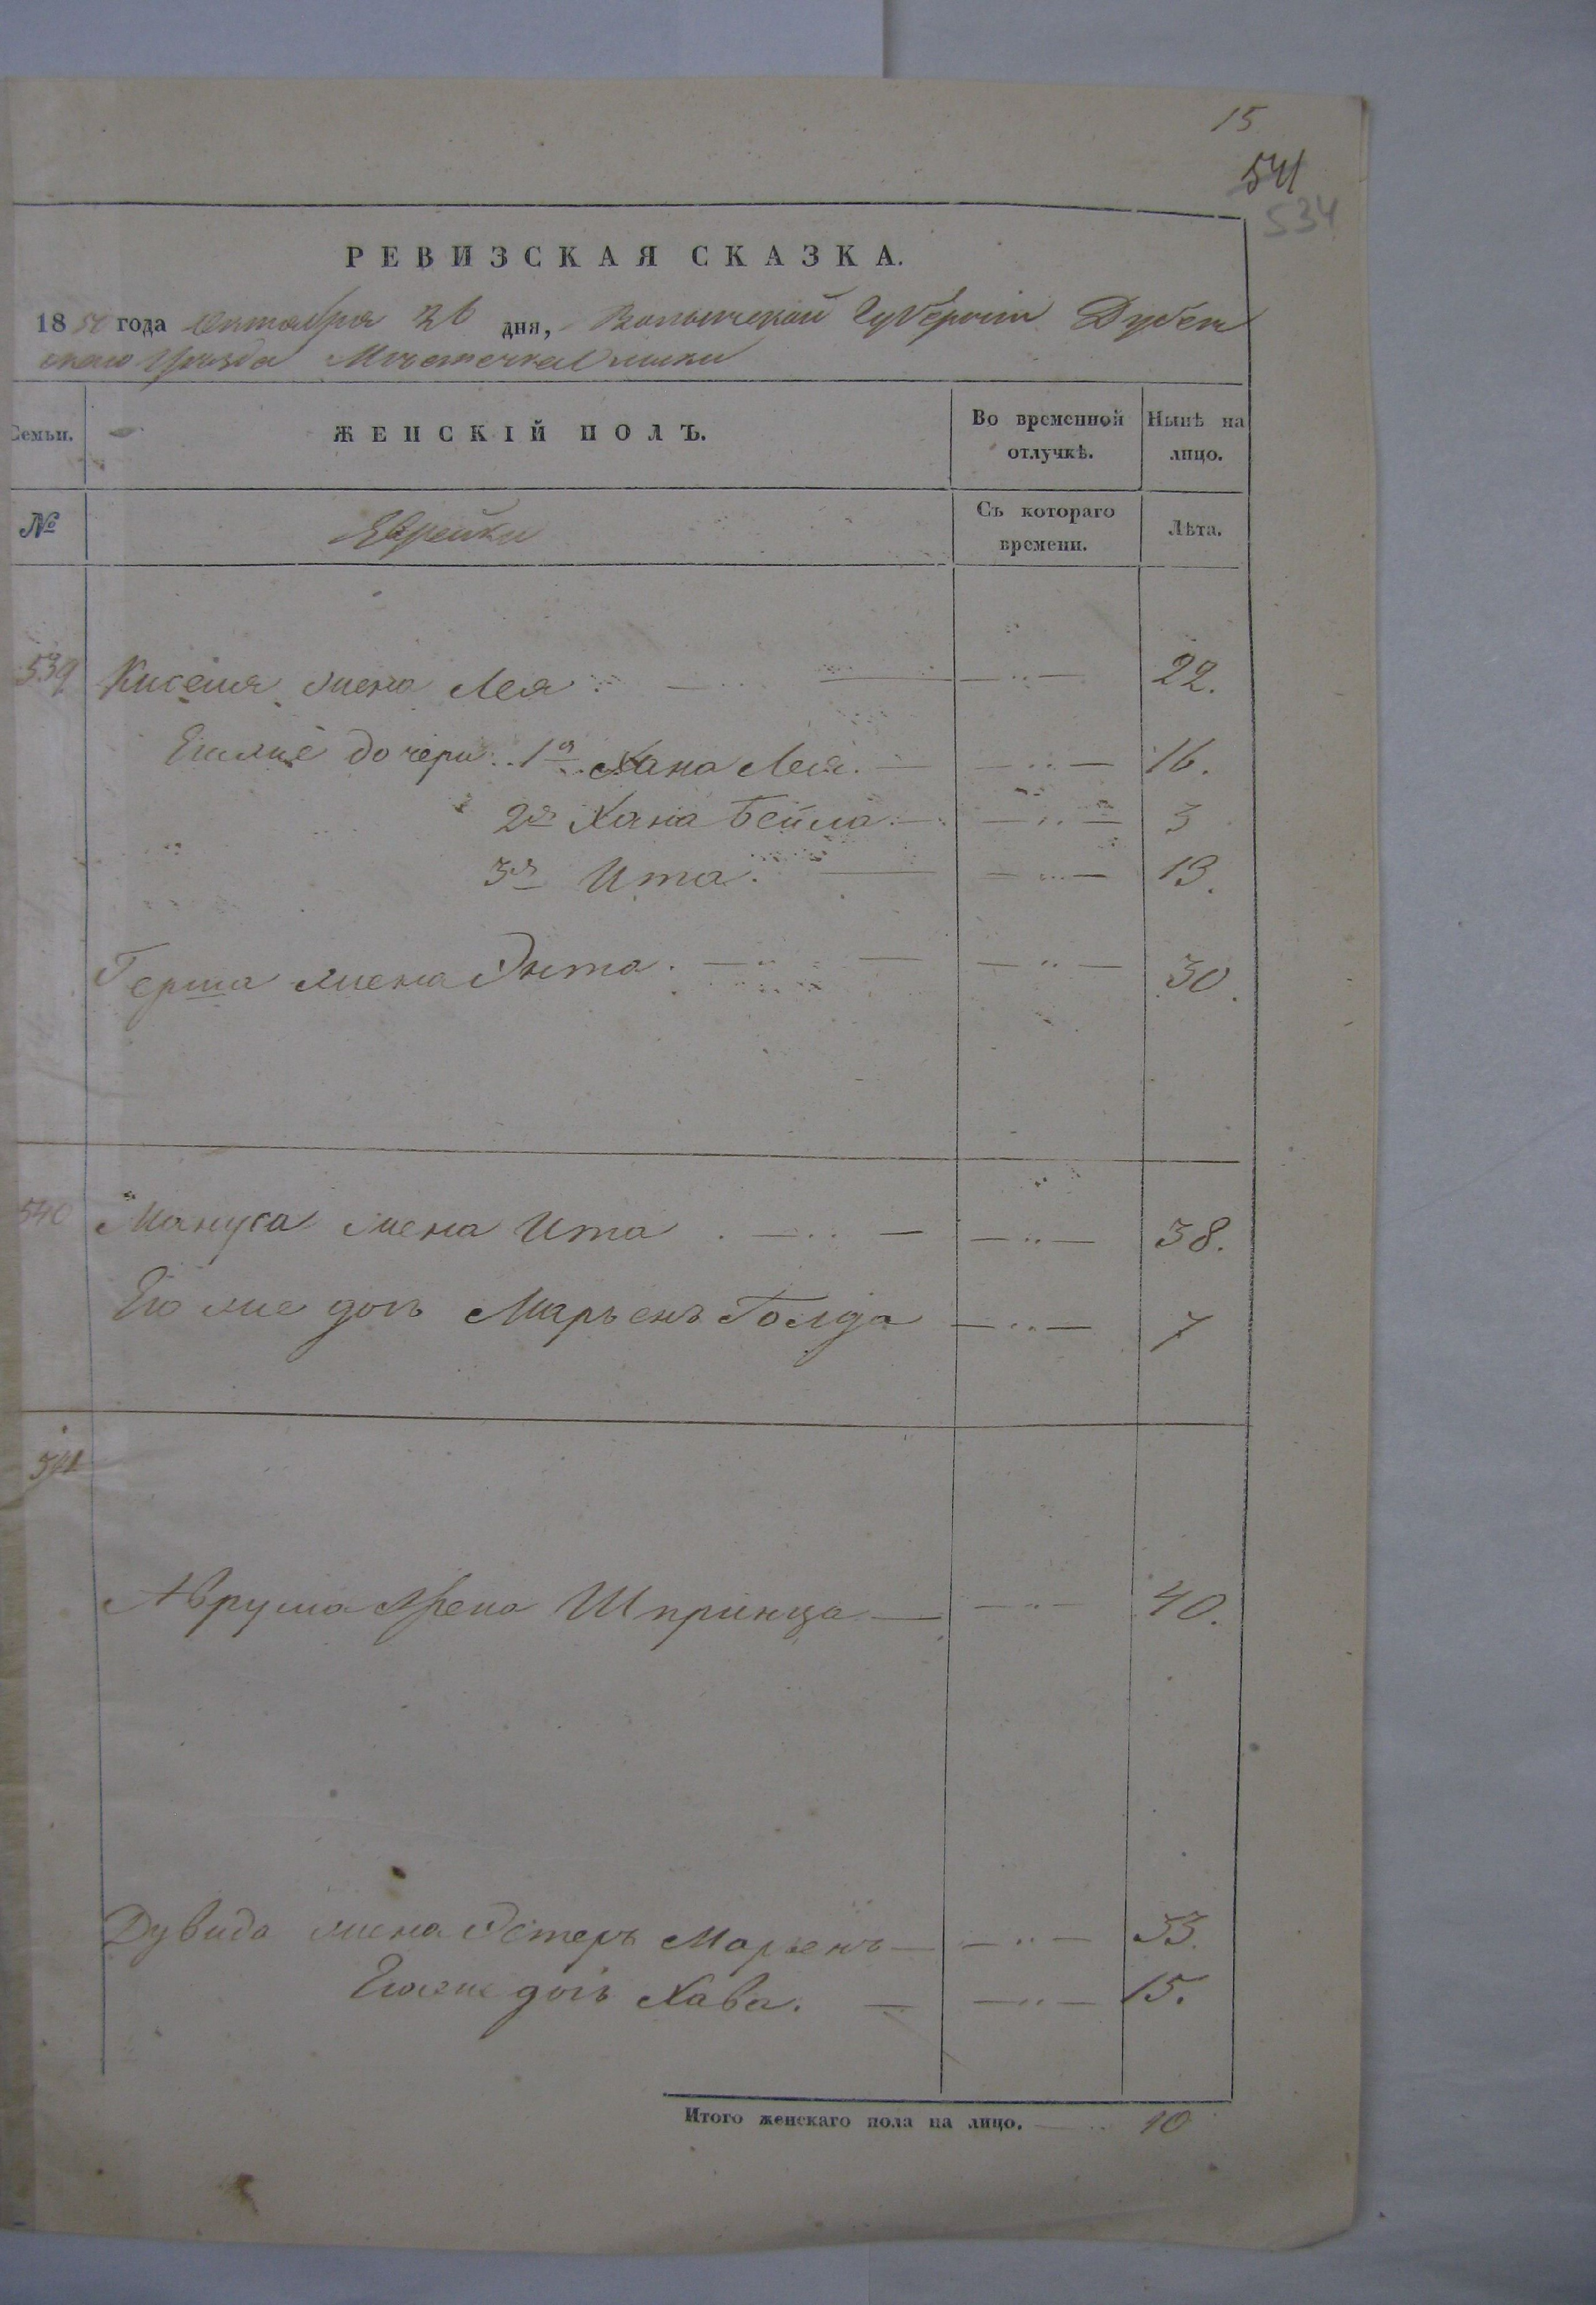 15
541
534
РЕВИЗСКАЯ СКАЗКА.
1850 года Октября 26 дня, Волынской Губерніи Дубен
скаго Уѣзда Мѣстечка Олыки
Семьи. ЖЕНСКІЙ ПОЛЪ. Во временной отлучкѣ. Нынѣ на лицо.
№ Еврейки Съ котораго времени. Лѣта.
539 Киселя жена Лея 22.
Его же дочери 1я Хана Лея. 16.
2я Хана Бейла 3
3я Ита. 13.
Герша жена Энта. 30.
540 Мануса жена Ита 38.
Его же дочь Марьемъ Голда 7
541
Аврума жена Шпринца 40.
Дувида жена Эстеръ Марьемъ 53.
Его же дочь Хава. 15.
Итого женскаго пола на лицо. 10